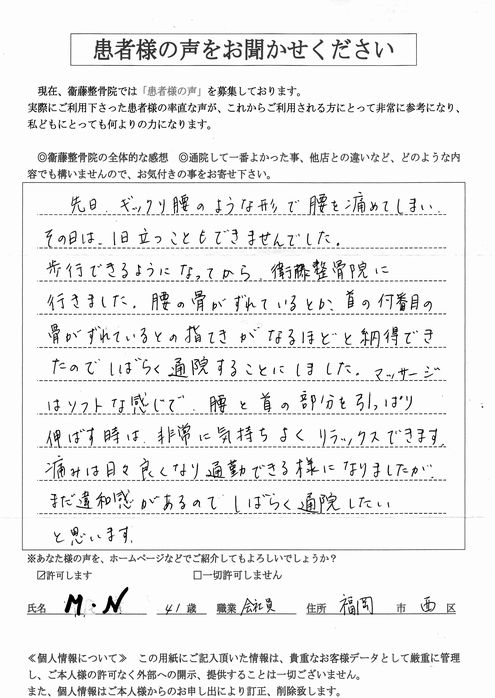 患者様の声をお聞かせください
現在、衞藤整骨院では「患者様の声」を募集しております。
実際にご利用下さった患者様の率直な声が、これからご利用される方にとって非常に参考になり、
私どもにとっても何よりの力になります。
◎衞藤整骨院の全体的な感想　◎通院して一番よかった事、他店との違いなど、どのような内
容でも構いませんので、お気付きの事をお寄せ下さい。
先日、ギックリ腰のような形で腰を痛めてしまい、
その日は、1日立つこともできませんでした。
歩行できるようになってから、衛藤整骨院に
行きました。腰の骨がずれているとか、首の付番目の
骨がずれているとの指てきがなるほどと納得でき
たのでしばらく通院することにしました。マッサージ
はソフトな感じで、腰と首の部分を引っぱり
伸ばす時は、非常に気持ちよくリラックスできます。
痛みは日々良くなり通勤できる様になりましたが、
まだ違和感があるので、しばらく通院したい
と思います。
※あなた様の声を、ホームページなどでご紹介してもよろしいでしょうか？
☑許可します　□一切許可しません
氏名　M・N　41歳　職業　会社員　住所　福岡　市　西　区
≪個人情報について≫　この用紙にご記入頂いた情報は、貴重なお客様データとして厳重に管理
し、ご本人様の許可なく外部への開示、提供することは一切ございません。
また、個人情報はご本人様からのお申し出により訂正、削除致します。